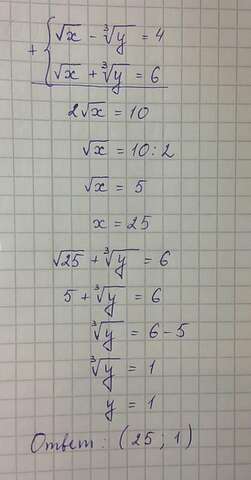 √x - ∛y = 4
+ { √x + ∛y = 6
2√x = 10
√x = 10 : 2
√x = 5
x = 25
√25 + ∛y = 6
5 + ∛y = 6
∛y = 6 - 5
∛y = 1
y = 1
Ответ: (25; 1)